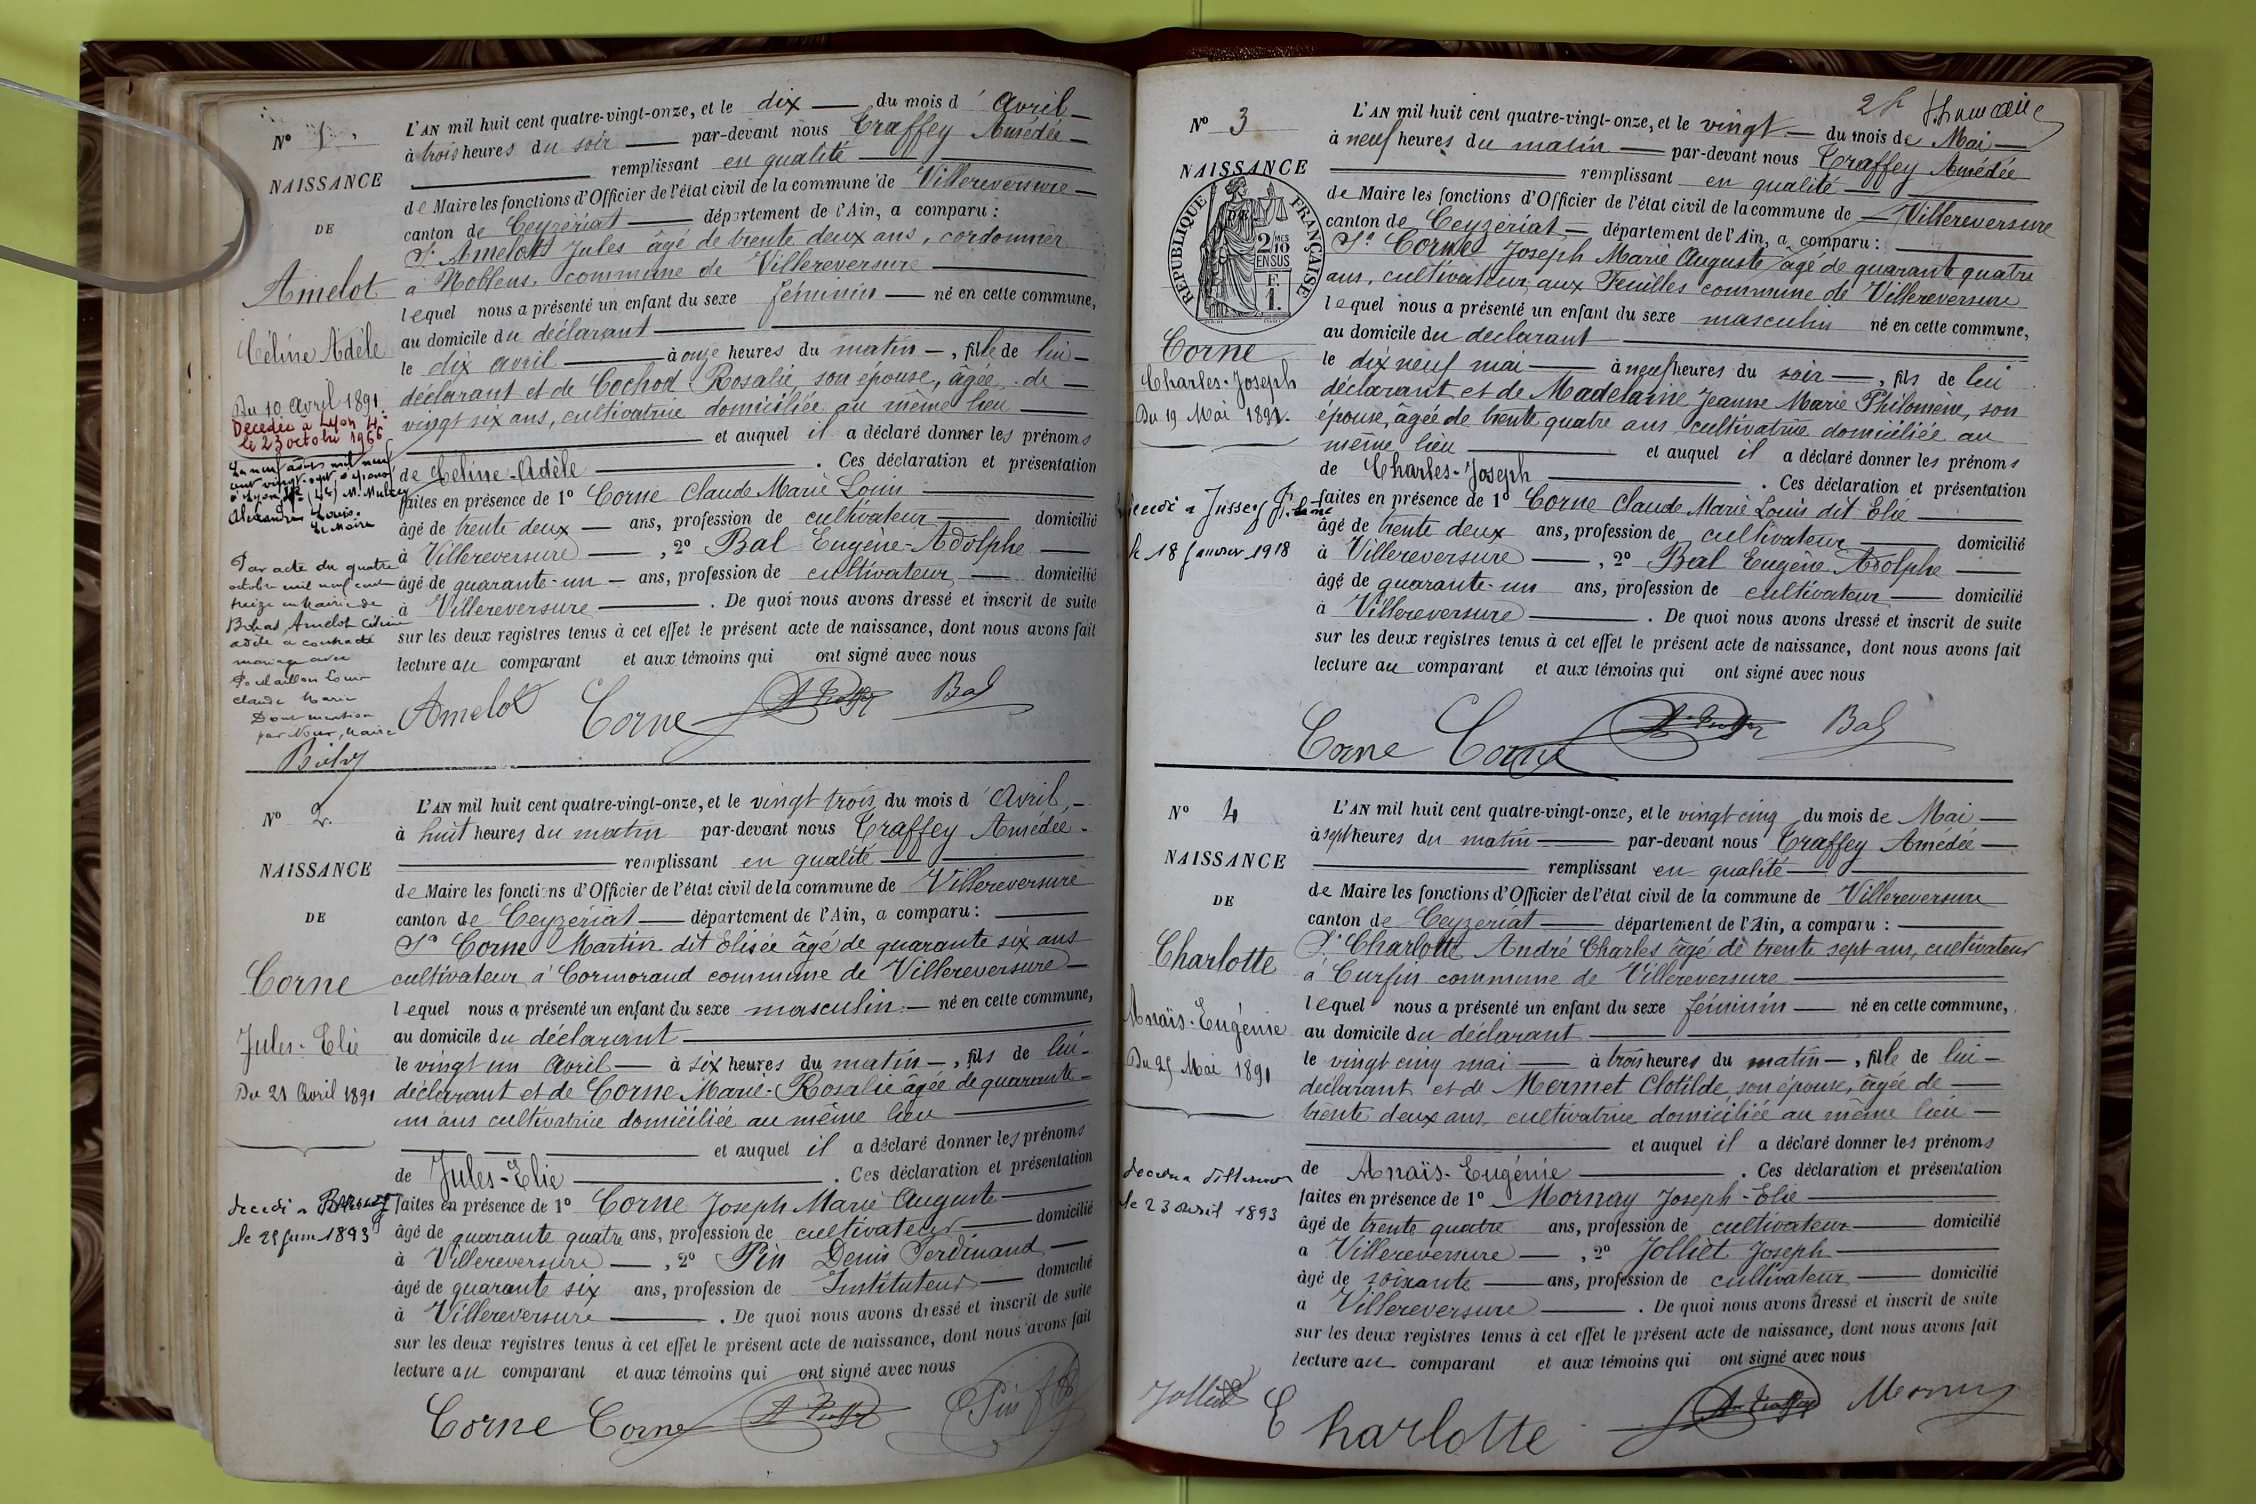 Nº 1.
NAISSANCE
DE
Amelot
Céline Adèle
Du 10 Avril 1891
Décédée à Lyon 4e
le 23 octobre 1966
Alexandre Louis.
Le Maire
Par acte du quatre
octobre mil neuf cent
treize en Mairie de
Bohas, Amelot Céline
adèle a contracté
mariage avec
claude Marie
Dont mention
par Nous, Maire
L'AN mil huit cent quatre-vingt-onze, et le dix — du mois d' Avril —
à trois heures du soir — par-devant nous Traffey Amédée —
remplissant en qualité —
de Maire les fonctions d'Officier de l'état civil de la commune de Villereversure —
canton de Ceyzériat — département de l'Ain, a comparu :
Sr Amelot Jules âgé de trente deux ans, cordonnier
à Noblens, commune de Villereversure —
lequel nous a présenté un enfant du sexe féminin — né en cette commune,
au domicile du déclarant —
le dix avril — à onze heures du matin —, fille de lui —
déclarant et de Cochod Rosalie, son épouse, âgée de —
vingt six ans, cultivatrice domiciliée au même lieu —
et auquel il a déclaré donner les prénoms
de Céline-Adèle — . Ces déclaration et présentation
faites en présence de 1º Corne Claude Marie Louis —
âgé de trente deux — ans, profession de cultivateur — domicilié
à Villereversure — , 2º Bal Eugène-Adolphe —
âgé de quarante-un — ans, profession de cultivateur — domicilié
à Villereversure — . De quoi nous avons dressé et inscrit de suite
sur les deux registres tenus à cet effet le présent acte de naissance, dont nous avons fait
lecture au comparant et aux témoins qui ont signé avec nous
Amelot Corne A. Traffey Bal
Nº 2.
NAISSANCE
DE
Corne
Jules-Elie
Du 21 Avril 1891
décédé à
le 25 juin 1893
L'AN mil huit cent quatre-vingt-onze, et le vingt trois du mois d' Avril, —
à huit heures du matin par-devant nous Traffey Amédée.
remplissant en qualité —
de Maire les fonctions d'Officier de l'état civil de la commune de Villereversure
canton de Ceyzériat — département de l'Ain, a comparu : —
Sr Corne Martin dit Elisée âgé de quarante six ans
cultivateur à Cormorand commune de Villereversure —
lequel nous a présenté un enfant du sexe masculin — né en cette commune,
au domicile du déclarant —
le vingt un Avril — à six heures du matin —, fils de lui —
déclarant et de Corne Marie-Rosalie âgée de quarante —
un ans cultivatrice domiciliée au même lieu —
et auquel il a déclaré donner les prénoms
de Jules-Elie — . Ces déclaration et présentation
faites en présence de 1º Corne Joseph Marie Auguste —
âgé de quarante quatre ans, profession de cultivateur — domicilié
à Villereversure — , 2º Pin Denis Ferdinand —
âgé de quarante six ans, profession de Instituteur — domicilié
à Villereversure — . De quoi nous avons dressé et inscrit de suite
sur les deux registres tenus à cet effet le présent acte de naissance, dont nous avons fait
lecture au comparant et aux témoins qui ont signé avec nous
Corne Corne A. Traffey Pin
Nº 3
NAISSANCE
DE
RÉPUBLIQUE FRANÇAISE
2/10 EN SUS
F. 1.
Corne
Charles-Joseph
Du 19 Mai 1891.
Décédé à Jussey
le 18 Janvier 1918
L'AN mil huit cent quatre-vingt-onze, et le vingt — du mois de Mai —
à neuf heures du matin — par-devant nous Traffey Amédée
remplissant en qualité —
de Maire les fonctions d'Officier de l'état civil de la commune de — Villereversure
canton de Ceyzériat — département de l'Ain, a comparu : —
Sr Corne Joseph Marie Auguste âgé de quarante quatre
ans, cultivateur, aux Feuilles commune de Villereversure
lequel nous a présenté un enfant du sexe masculin né en cette commune,
au domicile du déclarant —
le dix neuf mai — à neuf heures du soir —, fils de lui
déclarant et de Madelaine Jeanne Marie Philomène, son
épouse, âgée de trente quatre ans cultivatrice domiciliée au
même lieu — et auquel il a déclaré donner les prénoms
de Charles-Joseph — . Ces déclaration et présentation
faites en présence de 1º Corne Claude Marie Louis dit Elie —
âgé de trente deux ans, profession de cultivateur — domicilié
à Villereversure — , 2º Bal Eugène Adolphe —
âgé de quarante-un ans, profession de cultivateur — domicilié
à Villereversure — . De quoi nous avons dressé et inscrit de suite
sur les deux registres tenus à cet effet le présent acte de naissance, dont nous avons fait
lecture au comparant et aux témoins qui ont signé avec nous
Corne Corne A. Traffey Bal
Nº 4
NAISSANCE
DE
Charlotte
Anaïs-Eugénie
Du 25 Mai 1891
le 23 avril 1893
L'AN mil huit cent quatre-vingt-onze, et le vingt cinq du mois de Mai —
à sept heures du matin — par-devant nous Traffey Amédée —
remplissant en qualité —
de Maire les fonctions d'Officier de l'état civil de la commune de Villereversure
canton de Ceyzériat — département de l'Ain, a comparu : —
Sr Charlotte André Charles âgé de trente sept ans, cultivateur
à Curfin commune de Villereversure —
lequel nous a présenté un enfant du sexe féminin — né en cette commune,
au domicile du déclarant —
le vingt cinq mai — à trois heures du matin —, fille de lui —
déclarant et de Mermet Clotilde, son épouse, âgée de —
trente deux ans, cultivatrice domiciliée au même lieu —
et auquel il a déclaré donner les prénoms
de Anaïs-Eugénie — . Ces déclaration et présentation
faites en présence de 1º Mornay Joseph-Elie —
âgé de trente quatre ans, profession de cultivateur — domicilié
à Villereversure — , 2º Jolliet Joseph —
âgé de soixante — ans, profession de cultivateur — domicilié
à Villereversure — . De quoi nous avons dressé et inscrit de suite
sur les deux registres tenus à cet effet le présent acte de naissance, dont nous avons fait
lecture au comparant et aux témoins qui ont signé avec nous
Jolliet Charlotte A. Traffey Mornay